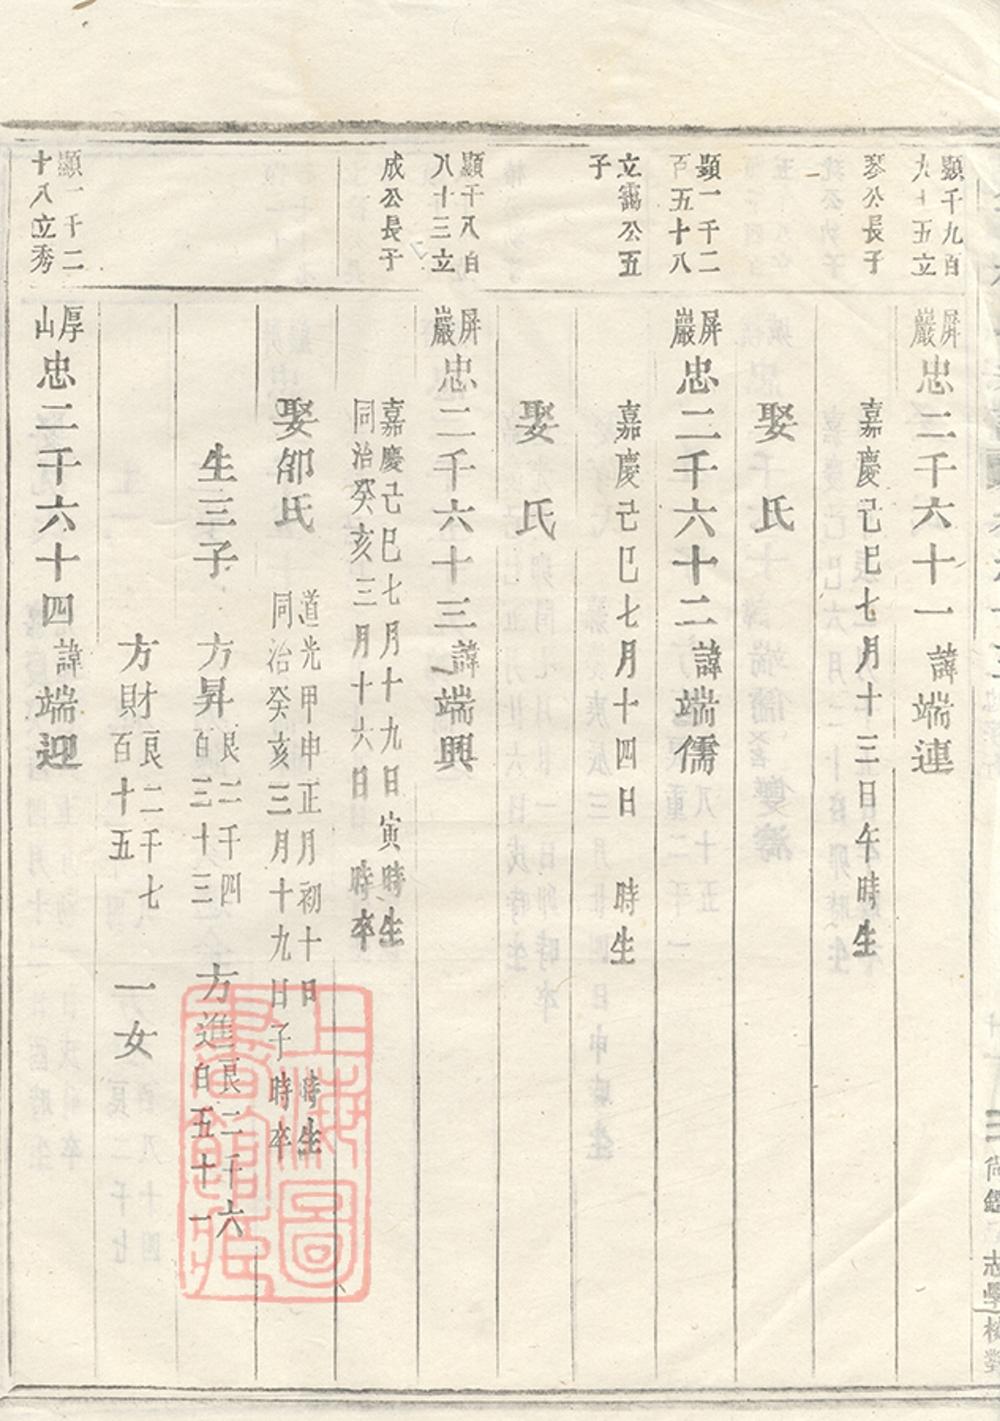 顯千九百
九十五立
琴公長子
屏巖忠二千六十一諱端連
嘉慶己巳七月十三日午時生
娶　氏
顯一千二
百五十八
立靄公五
子
屏巖忠二千六十二諱端儒
嘉慶己巳七月十四日　時生
娶　氏
顯千八百
八十三立
成公長子
屏巖忠二千六十三諱端興
嘉慶己巳七月十九日寅時生
同治癸亥三月十六日　時卒
娶邵氏
道光甲申正月初十日　時生
同治癸亥三月十九日子時卒
生三子　方昇良二千四百三十三　方進良二千六百五十一
方財良二千七百十五　一女
顯一千二
十八立秀
厚山忠二千六十四諱端迎
上海圖書館藏